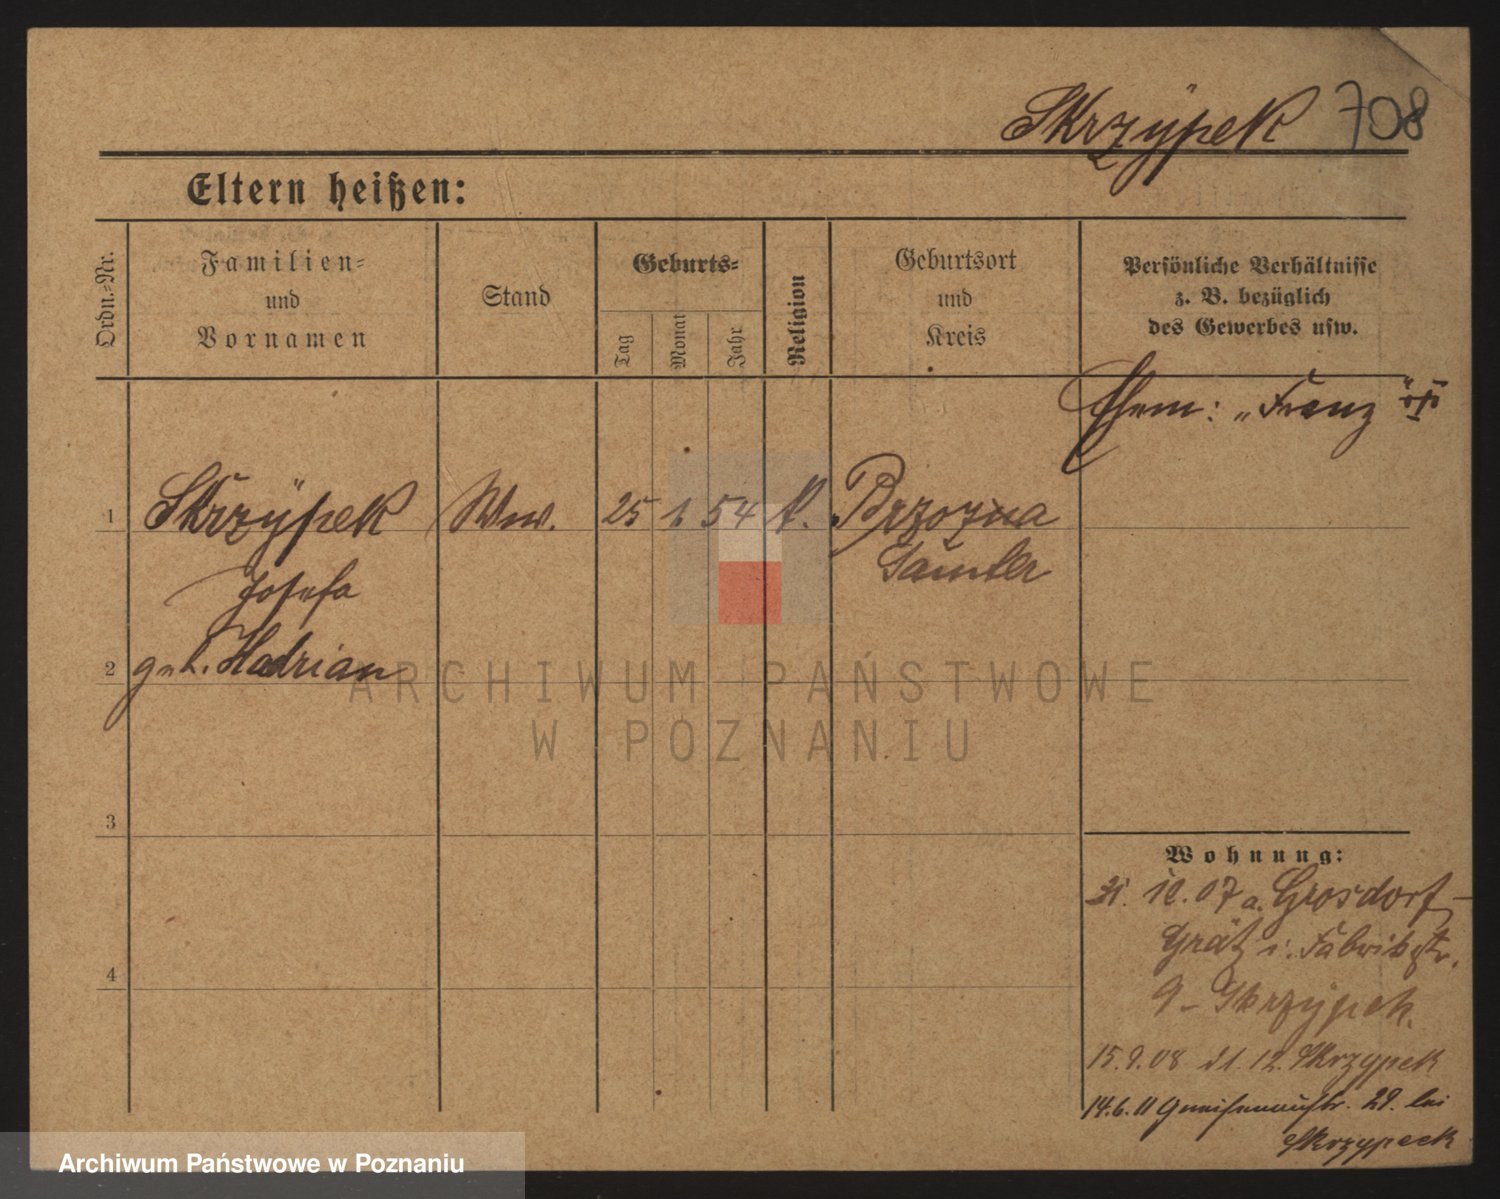 Skrzÿpek 708
Eltern heißen:
Ordn.-Nr.
Familien-
und
Vornamen
Stand
Geburts-
Tag
Monat
Jahr
Religion
Geburtsort
und
Kreis
Persönliche Verhältnisse
z. B. bezüglich
des Gewerbes usw.
Ehem: "Franz"
1 Skrzÿpek Ww. 25 1. 54 k. Brzozna
Samter
Josefa
2 geb. Hadrian
ARCHIWUM PAŃSTWOWE
W POZNANIU
3
4
Wohnung:
10.07 a. Grosdorf
Grätz i. Fabrikstr.
9 - Skrzÿpek.
15.9.08 12. Skrzypek
14.6.11 Gneisenaustr. 29. bei
Skrzypeck
Archiwum Państwowe w Poznaniu